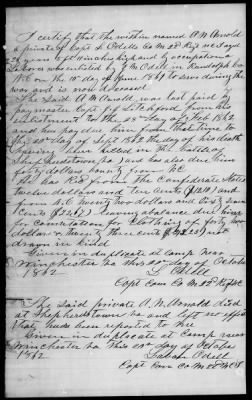 I certify that the within named A. M. Arnold
a private of Capt Odells Co M 22d Regt N C aged
years feet inches high and by occupation a
was enlisted by J M Odell in Randolph Co
N C on the 10th day of June 1861 to serve during the
war and is now deceased
The Said A M Arnold was last paid by
paymaster Capt from his
enlistment to the 28th day of Feb 1862
and has pay due him from that time to
the 20th day of Sept 1862 the day of his death
having been killed in the battle of
Shepherdstown Va and has also due him
forty dollars bounty from N C
He has due from the Confederate States
twelve dollars and ten Cents ($12.10) and
from N. C. twenty two dollars and
Cents leaving balance due him
for commutation for clothing of forty two
dollars & three Cents not
drawn in kind
Given in duplicate at Camp near
Winchester Va this day of October
1862
L. Odell
Capt Com Co M 22d Regt NC
The Said private A. M. Arnold died
at Shepherdstown Va and left no effects
that have been reported to me
Given in duplicate at Camp near
Winchester Va this day of October
1862
Laban Odell
Capt Com Co M 22d NCT